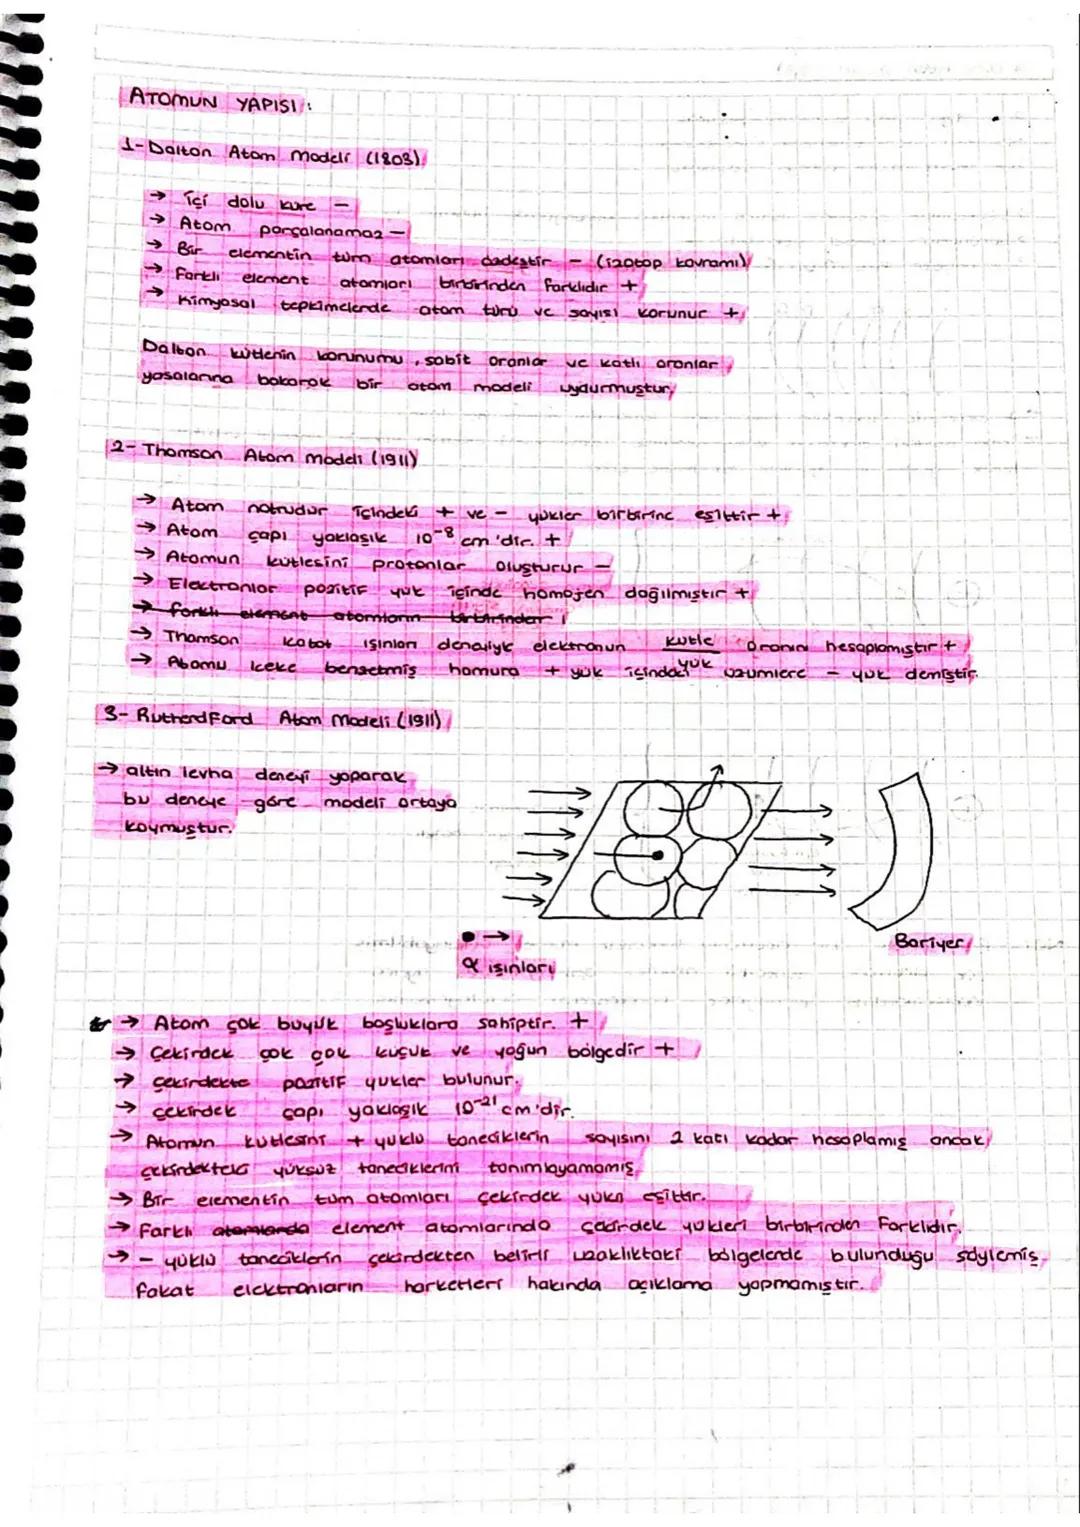 ATOMUN YAPISI:
1-Dalton Atom Modeli (1803)
→ içi dolu küre -
→ Atom parçalanamaz -
→ Bir elementin tüm atomları özdeştir - (izotop kavramı)
→ Farklı element atomları birbirinden farklıdır +
→ Kimyasal tepkimelerde atom türü ve sayısı korunur +
Dalton kütlenin korunumu, sabit oranlar ve katlı oranlar
yasalarına bakarak bir atom modeli uydurmuştur.
2- Thomson Atom modeli (1911)
→ Atom nötrudür içindeki + ve - yükler birbirine eşittir +
→ Atom çapı yaklaşık 10⁻⁸ cm'dir. +
→ Atomun kütlesini protonlar oluşturur -
→ Elektronlar pozitif yük içinde homojen dağılmıştır +
→ farklı element atomların birbirinden
→ Thomson katot ışınları deneyiyle elektronun kütle/yük oranını hesaplamıştır +
→ Atomu keke benzetmiş hamura + yük içindeki üzümlere - yük demiştir.
3- RutherdFord Atom Modeli (1911)
→ altın levha deneyi yaparak
bu deneye göre modeli ortaya
koymuştur.
Bariyer
α ışınları
→ Atom çok büyük boşluklara sahiptir. +
→ Çekirdek çok çok küçük ve yoğun bölgedir +
→ Çekirdekte pozitif yükler bulunur.
→ Çekirdek çapı yaklaşık 10⁻²¹ cm'dir.
→ Atomun kütlesini + yüklü taneciklerin sayısını 2 katı kadar hesaplamış ancak
çekirdekteki yüksüz taneciklerini tanımlayamamış
→ Bir elementin tüm atomları çekirdek yükü eşittir.
→ Farklı atomlarda element atomlarında çekirdek yükleri birbirinden Farklıdır.
→ - yüklü taneciklerin çekirdekten belirli uzaklıktaki bölgelerde bulunduğu söylemiş.
fakat elektronların harketleri hakında açıklama yapmamıştır.